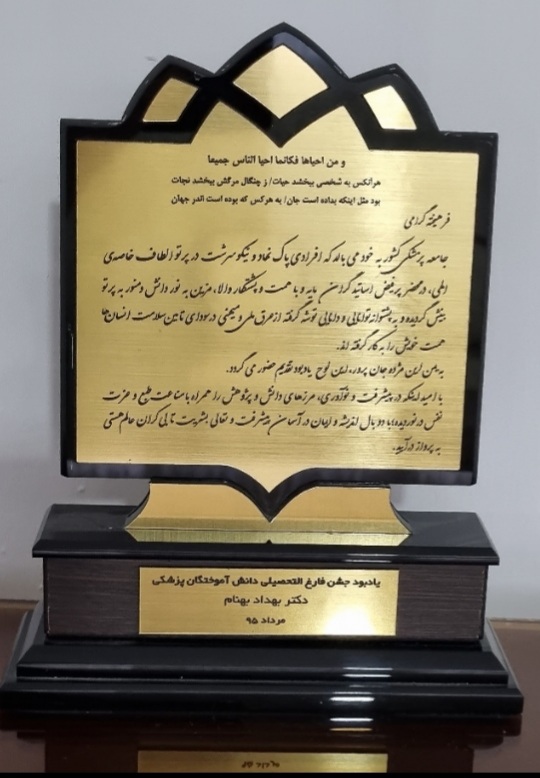 و من احیاها فکانما احیا الناس جمیعا
هرآنکس به شخصی ببخشد حیات/ ز چنگال مرگش ببخشد نجات
بود مثل اینکه بداده است جان/ به هرکس که بوده است اندر جهان
فرهیخته گرامی
جامعه پزشکی کشور به خود می بالد که افرادی پاک نهاد و نیکو سرشت در پرتو الطاف خاصه‌ی
الهی، در محضر پر فیض اساتید گرانمایه و با همت و پشتکار والا، مزین به نور دانش و منور به پرتو
بینش گردیده و به پشتوانه توانایی و دانایی توشه گرفته از عرق ملی و میهنی در سودای تامین سلامت انسان‌ها
همت خویش را به کار گرفته اند.
به یمن این مژده جان پرور، این لوح یادبود تقدیم حضور می گردد.
با امید اینکه در پیشرفت و نوآوری، مرزهای دانش و پژوهش را همراه با مناعت طبع و عزت
نفس درنوردیده، با دو بال اندیشه و ایمان در آسمان پیشرفت و تعالی بشریت تا بی کران عالم هستی
به پرواز درآیید.
یادبود جشن فارغ التحصیلی دانش آموختگان پزشکی
دکتر بهداد بهنام
مرداد ۹۵